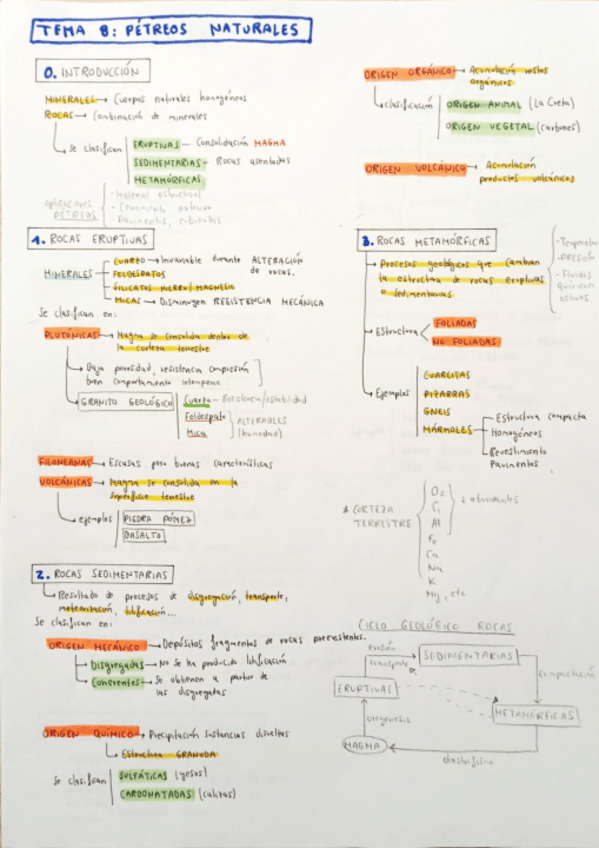 TEMA 8: PÉTREOS NATURALES
0. INTRODUCCIÓN
MINERALES → Cuerpos naturales homogéneos
ROCAS → Combinación de minerales
Se clasifican
ERUPTIVAS - Consolidación MAGMA
SEDIMENTARIAS - Rocas asentadas
METAMÓRFICAS
Aplicaciones PÉTREOS
- Material estructural
- Cerramiento exterior
- Pavimentos, cubiertas
1. ROCAS ERUPTIVAS
MINERALES
CUARZO → Invariable durante ALTERACIÓN de rocas.
FELDESPATOS
SILICATOS HIERRO/MAGNESIO
MICAS → Disminuyen RESISTENCIA MECÁNICA
Se clasifican en:
PLUTÓNICAS → Magma se consolida dentro de
la corteza terrestre
Baja porosidad, resistencia compresión
buen comportamiento intemperie
GRANITO GEOLÓGICO
Cuarzo - Resistencia/estabilidad
Feldespato
Mica
ALTERABLES
(humedad)
FILONEANAS → Escasas pero buenas características
VOLCÁNICAS → Magma se consolida en la
superficie terrestre
ejemplos
PIEDRA PÓMEZ
BASALTO
2. ROCAS SEDIMENTARIAS
Resultado de procesos de disgregación, transporte,
meteorización, litificación...
Se clasifican en:
ORIGEN MECÁNICO → Depósitos fragmentos de rocas preexistentes.
Disgregadas → No se ha producido litificación
Coherentes → Se obtienen a partir de
las disgregadas
ORIGEN QUÍMICO → Precipitación sustancias disueltas
Estructura GRANUDA
Se clasifican
SULFÁTICAS (yesos)
CARBONATADAS (calizas)
ORIGEN ORGÁNICO → Acumulación restos
orgánicos
clasificación
ORIGEN ANIMAL (La Creta)
ORIGEN VEGETAL (carbones)
ORIGEN VOLCÁNICO → Acumulación
productos volcánicos
3. ROCAS METAMÓRFICAS
Procesos geológicos que cambian
la estructura de rocas eruptivas
o sedimentarias
- PRESIÓN
- Fluidos
activos.
Estructura
FOLIADAS
NO FOLIADAS
Ejemplos
CUARCITAS
PIZARRAS
GNEIS
MÁRMOLES
Estructura compacta
Homogéneos
Revestimiento
Pavimentos
* CORTEZA
TERRESTRE
O2
Al
Fe
Ca
Na
K
Mg, etc
+ abundantes
CICLO GEOLÓGICO ROCAS
erosión
transporte
SEDIMENTARIAS
compactación
ERUPTIVAS
METAMÓRFICAS
orogénesis
MAGMA